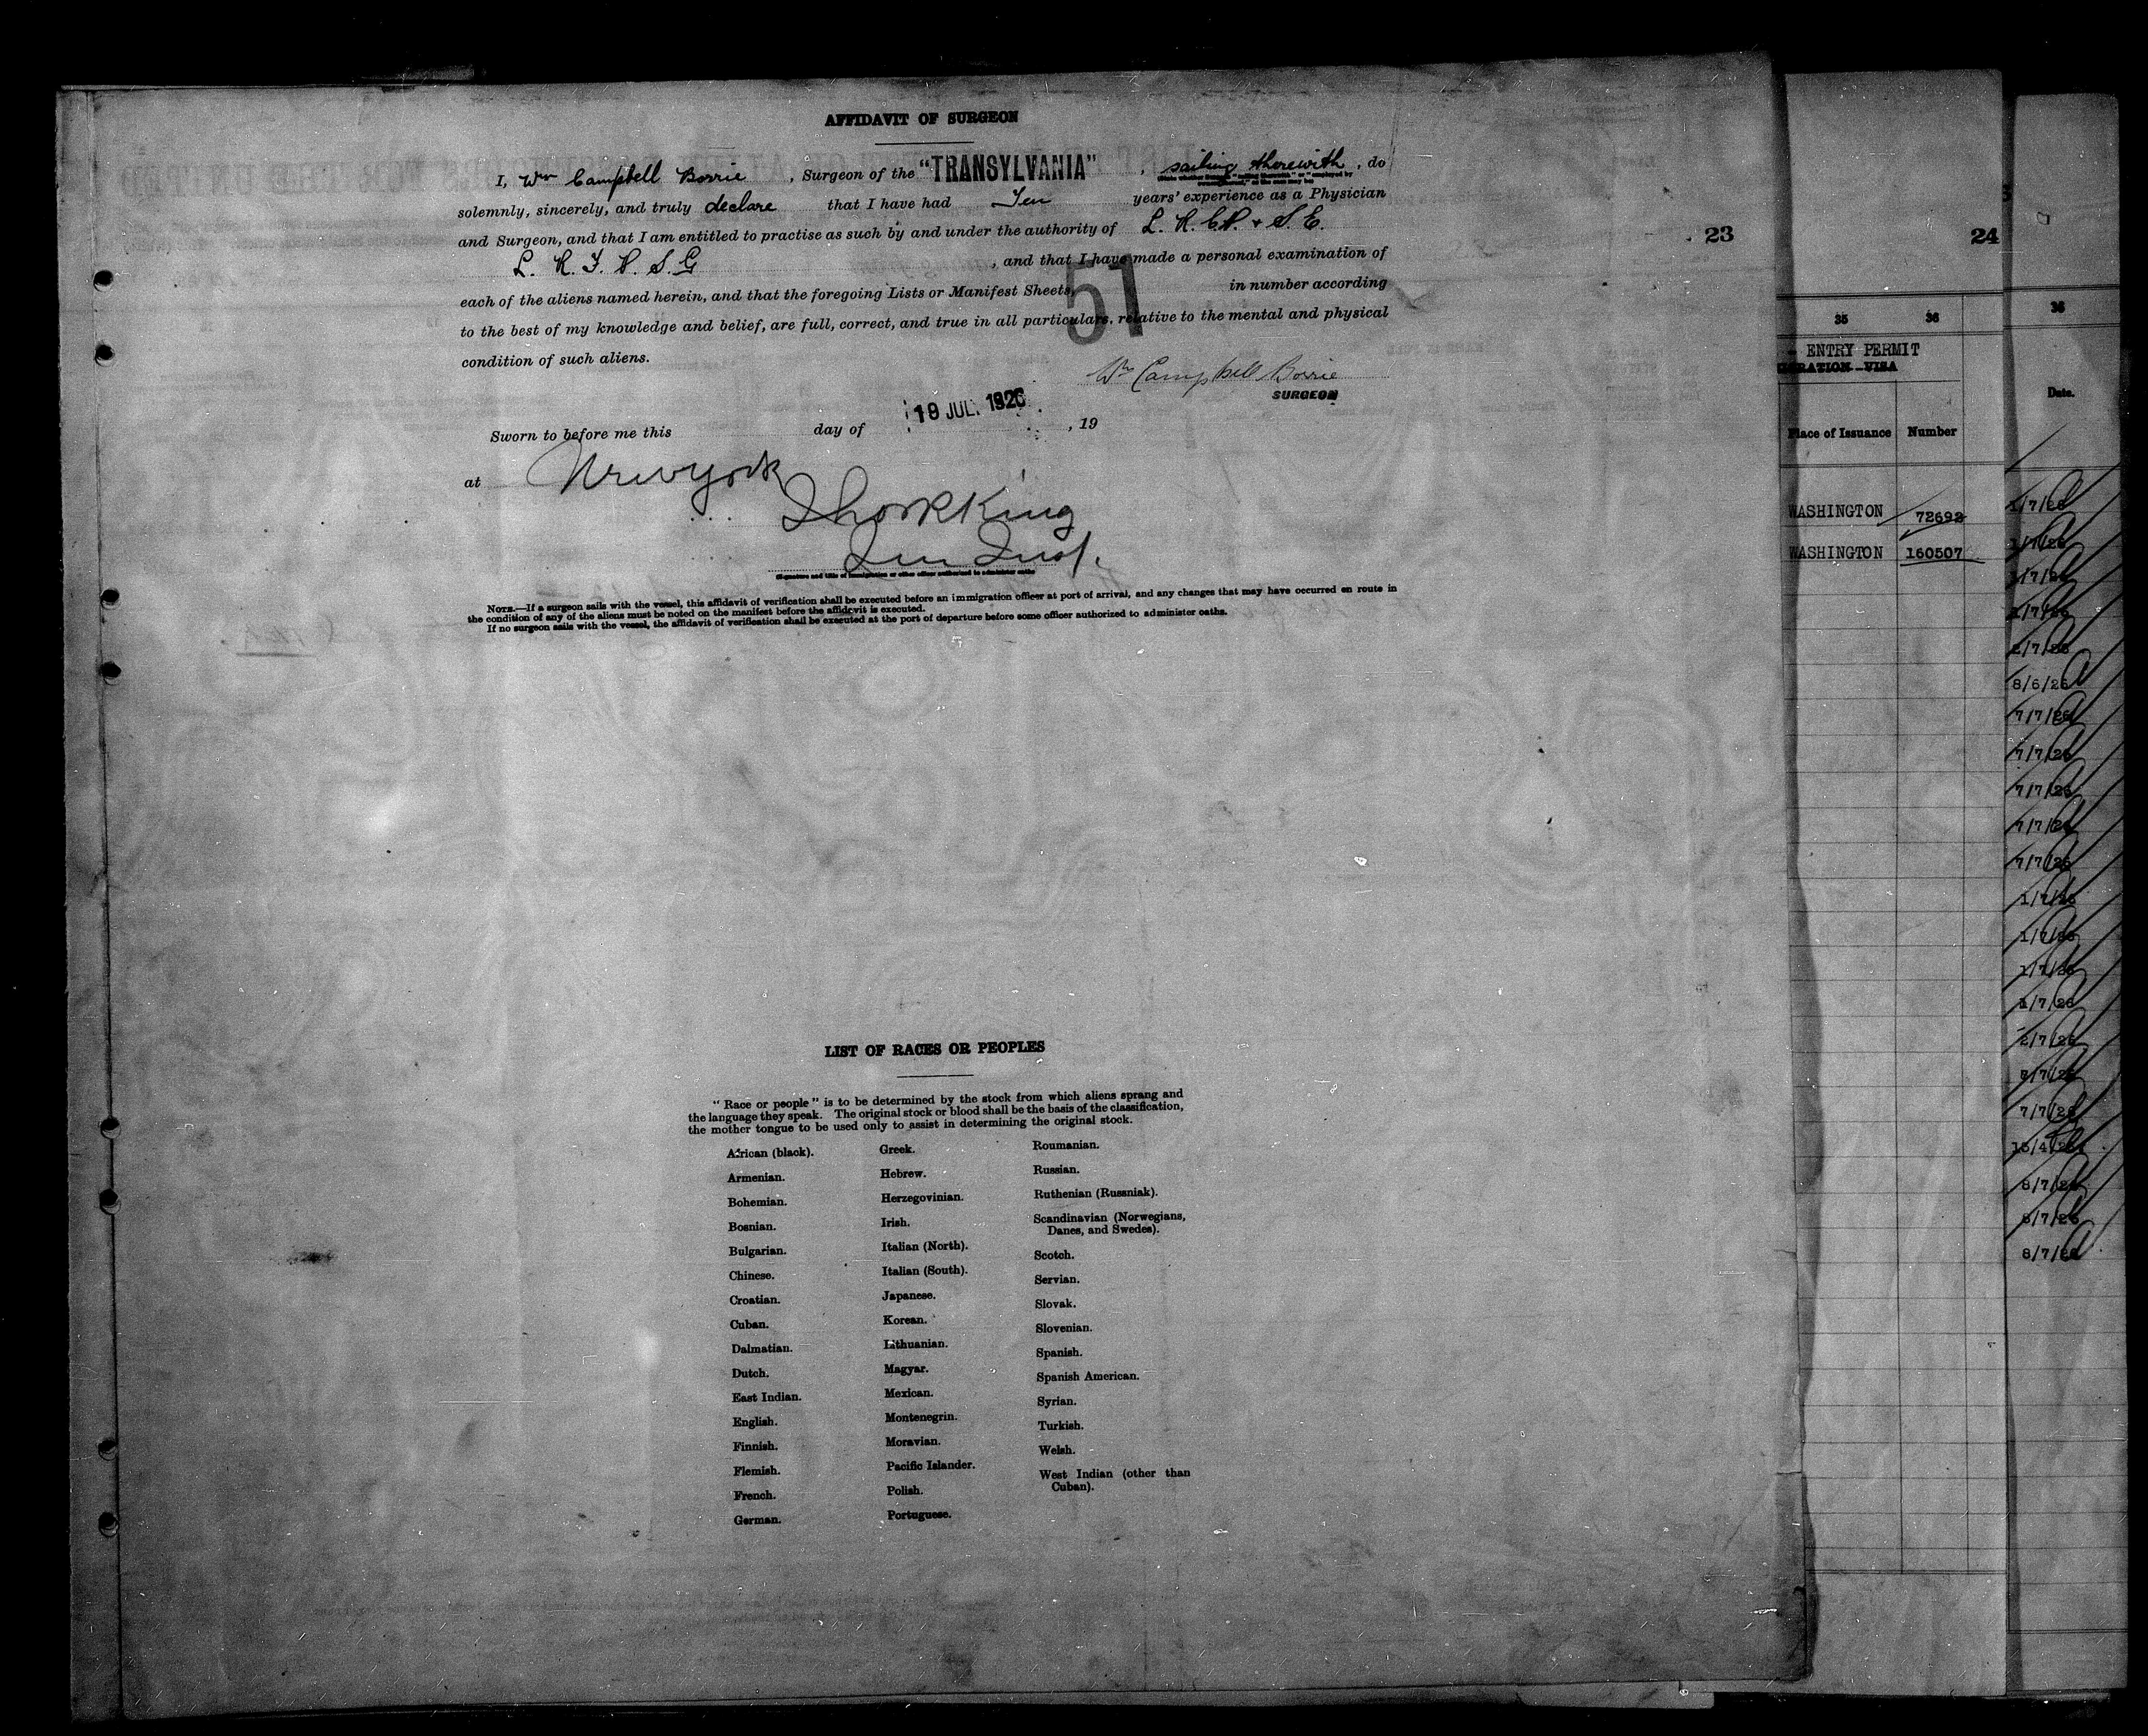 AFFIDAVIT OF SURGEON
I, Wm Campbell Borrie, Surgeon of the "TRANSYLVANIA", sailing therewith, do
solemnly, sincerely, and truly declare that I have had Ten years' experience as a Physician
and Surgeon, and that I am entitled to practise as such by and under the authority of L. R. C. P. & S. E.
L. R. F. P. S. G, and that I have made a personal examination of
each of the aliens named herein, and that the foregoing Lists or Manifest Sheets, 51 in number according
to the best of my knowledge and belief, are full, correct, and true in all particulars, relative to the mental and physical
condition of such aliens.
Wm Campbell Borrie
SURGEON
Sworn to before me this day of 19 JUL. 1926, 19
at New York
(Signature and title of immigration or other officer authorized to administer oaths
NOTE.—If a surgeon sails with the vessel, this affidavit of verification shall be executed before an immigration officer at port of arrival, and any changes that may have occurred en route in
the condition of any of the aliens must be noted on the manifest before the affidavit is executed.
If no surgeon sails with the vessel, the affidavit of verification shall be executed at the port of departure before some officer authorized to administer oaths.
LIST OF RACES OR PEOPLES
" Race or people " is to be determined by the stock from which aliens sprang and
the language they speak. The original stock or blood shall be the basis of the classification,
the mother tongue to be used only to assist in determining the original stock.
African (black).
Armenian.
Bohemian.
Bosnian.
Bulgarian.
Chinese.
Croatian.
Cuban.
Dalmatian.
Dutch.
East Indian.
English.
Finnish.
Flemish.
French.
German.
Greek.
Hebrew.
Herzegovinian.
Irish.
Italian (North).
Italian (South).
Japanese.
Korean.
Lithuanian.
Magyar.
Mexican.
Montenegrin.
Moravian.
Pacific Islander.
Polish.
Portuguese.
Roumanian.
Russian.
Ruthenian (Russniak).
Scandinavian (Norwegians,
Danes, and Swedes).
Scotch.
Servian.
Slovak.
Slovenian.
Spanish.
Spanish American.
Syrian.
Turkish.
Welsh.
West Indian (other than
Cuban).
23
24
35 36
- ENTRY PERMIT
IGRATION VISA
Place of Issuance Number
WASHINGTON 72692
WASHINGTON 160507
36
Date.
1/7/26
1/7/26
1/7/26
1/7/26
2/7/26
8/6/26
7/7/26
7/7/26
7/7/26
7/7/26
7/7/26
1/7/26
1/7/26
1/7/26
1/7/26
2/7/26
7/7/26
7/7/26
15/4/26
8/7/26
8/7/26
8/7/26